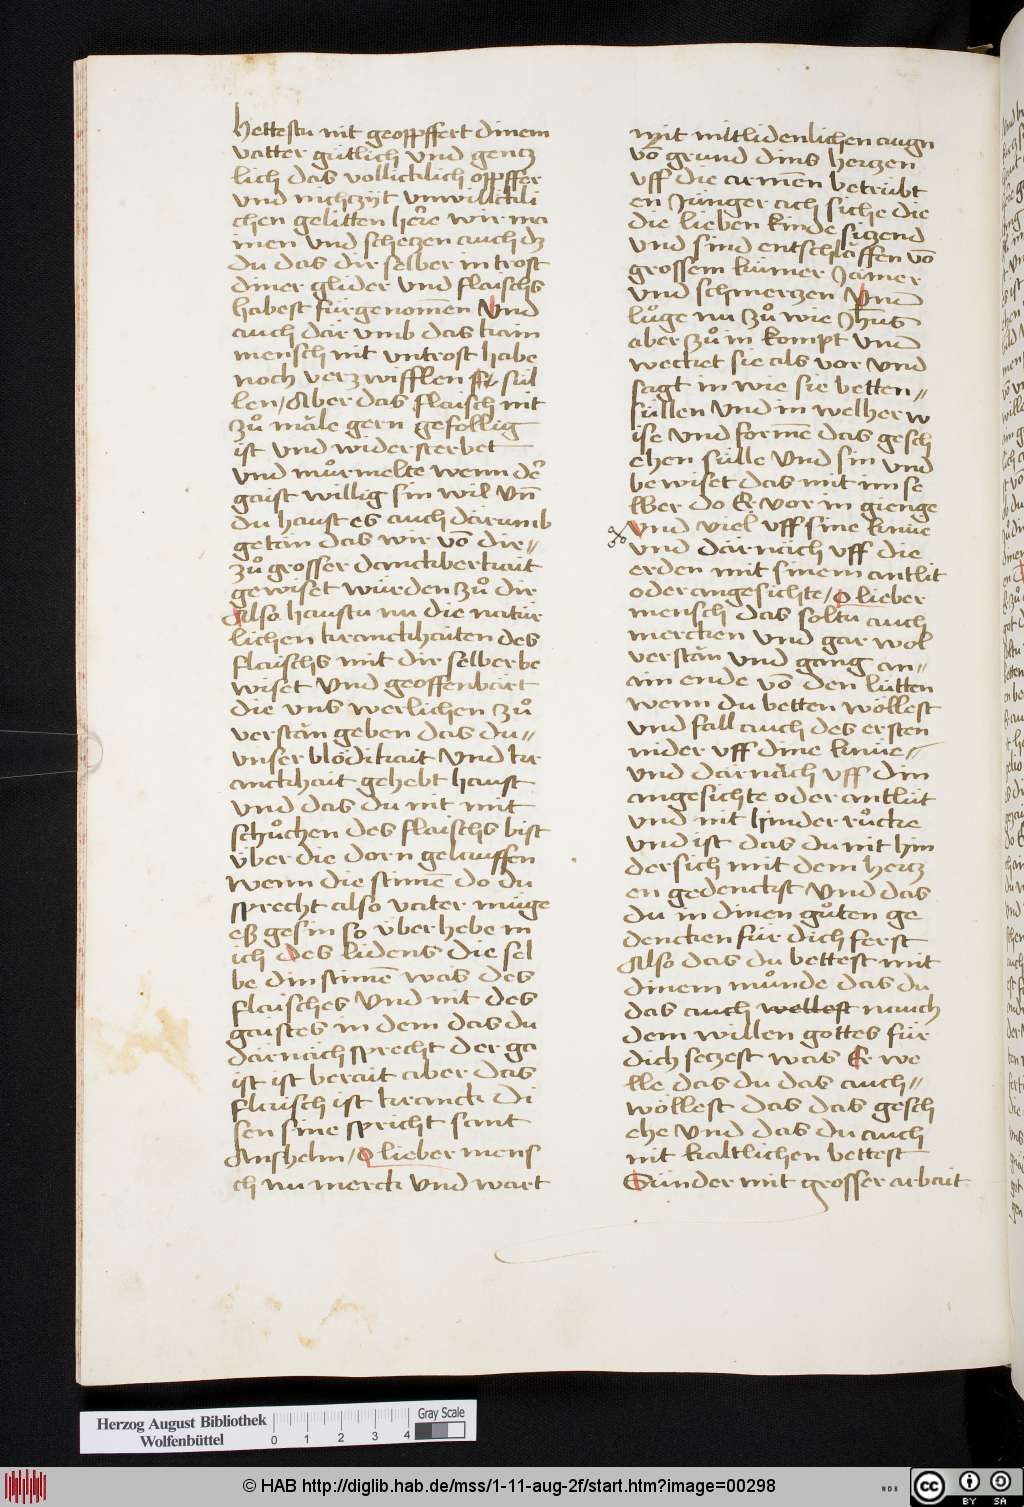 hettestu nit geopffert dinem
vatter gütlich vnd gentz
lich das vollicklich opffer
vnd nichzÿt vnwillickli
chen gelitten here wir mai
nen vnd schetzen auch dz
du das dir selber in trost
diner glider vnd flaischs
habest fürgenomēn Vnd
auch där vmb das kain
mensch nit vntrost habe
noch verzwifflen sül
len/ Aber das flaisch nit
zů mäle gern gefollig
ist vnd widersterbet
vnd můrmelte wenn der
gaist willig sin wil vn̄
du haust es auch därumb
getän das wir vō dir〃
zů grosser danckberkait
gewiset würden zů dir
Also haustu nu die natür
lichen kranckhaiten des
flaischs mit dir selber be
wiset Vnd geoffenbärt
die vns werlichen zů
verstän geben das du〃
vnser blödikait Vnd kr
anckhait gehebt haust
vnd das du nit mit
schůchen des flaischs bist
über die dorn gelauffen
Wenn die stimē do du
sprecht also vater müge
eß gesin so überhebe m
ich des lidens die sel
be din stimē was des
flaisches Vnd nit des
gaistes in dem das du
därnäch sprecht der ga
ist ist berait aber das
flaisch ist kranck di
sen sine spricht sant
Anshelm/ O lieber mens
ch nu merck Vnd wart
mit mitlidenlichen augn
vō grund dins hertzen
vff die armēn betrübt
en Jünger ach siche die
die lieben kinde sitzend
vnd sind entschläffen vō
grossem kumer Jamer
vnd schmertzen Vnd
lůge nu zů wie Jhūs
aber zů in kompt vnd
wecket sie als vor vnd
sagt in wie sie betten〃
süllen Vnd in welher w
ise Vnd formē das gesch
ehen sülle Vnd sin vnd
bewiset das mit im se
lber do Er vor in gienge
Vnd viel vff sine knüe
vnd därnäch vff die
erden mit sinem antlit
oder angesichte/ O lieber
mensch das soltu auch
mercken Vnd gar wol
verstän Vnd gang an〃
ain ende vō den lütten
wenn du betten wöllest
vnd fall auch des ersten
nider vff dine knüe
vnd därnäch vff din
angesichte oder antlüt
vnd nit hinder růcke
vnd ist das du nit hin
dersich mit dem hertz
en gedenckst Vnd das
du in dinen gůten ge
dencken für dich ferst
Also das du bettest mit
dinem můnde das du
das auch wellest nauch
dem willen gottes für
dich setzest was Er we
lle das du das auch〃
wöllest das das gesch
ehe Vnd das du auch
nit kaltlichen bettest
Sünder mit grosser arbait
Herzog August Bibliothek
Wolfenbüttel
0 1 2 3 4
Gray Scale
© HAB http://diglib.hab.de/mss/1-11-aug-2f/start.htm?image=00298
WDB
cc BY SA